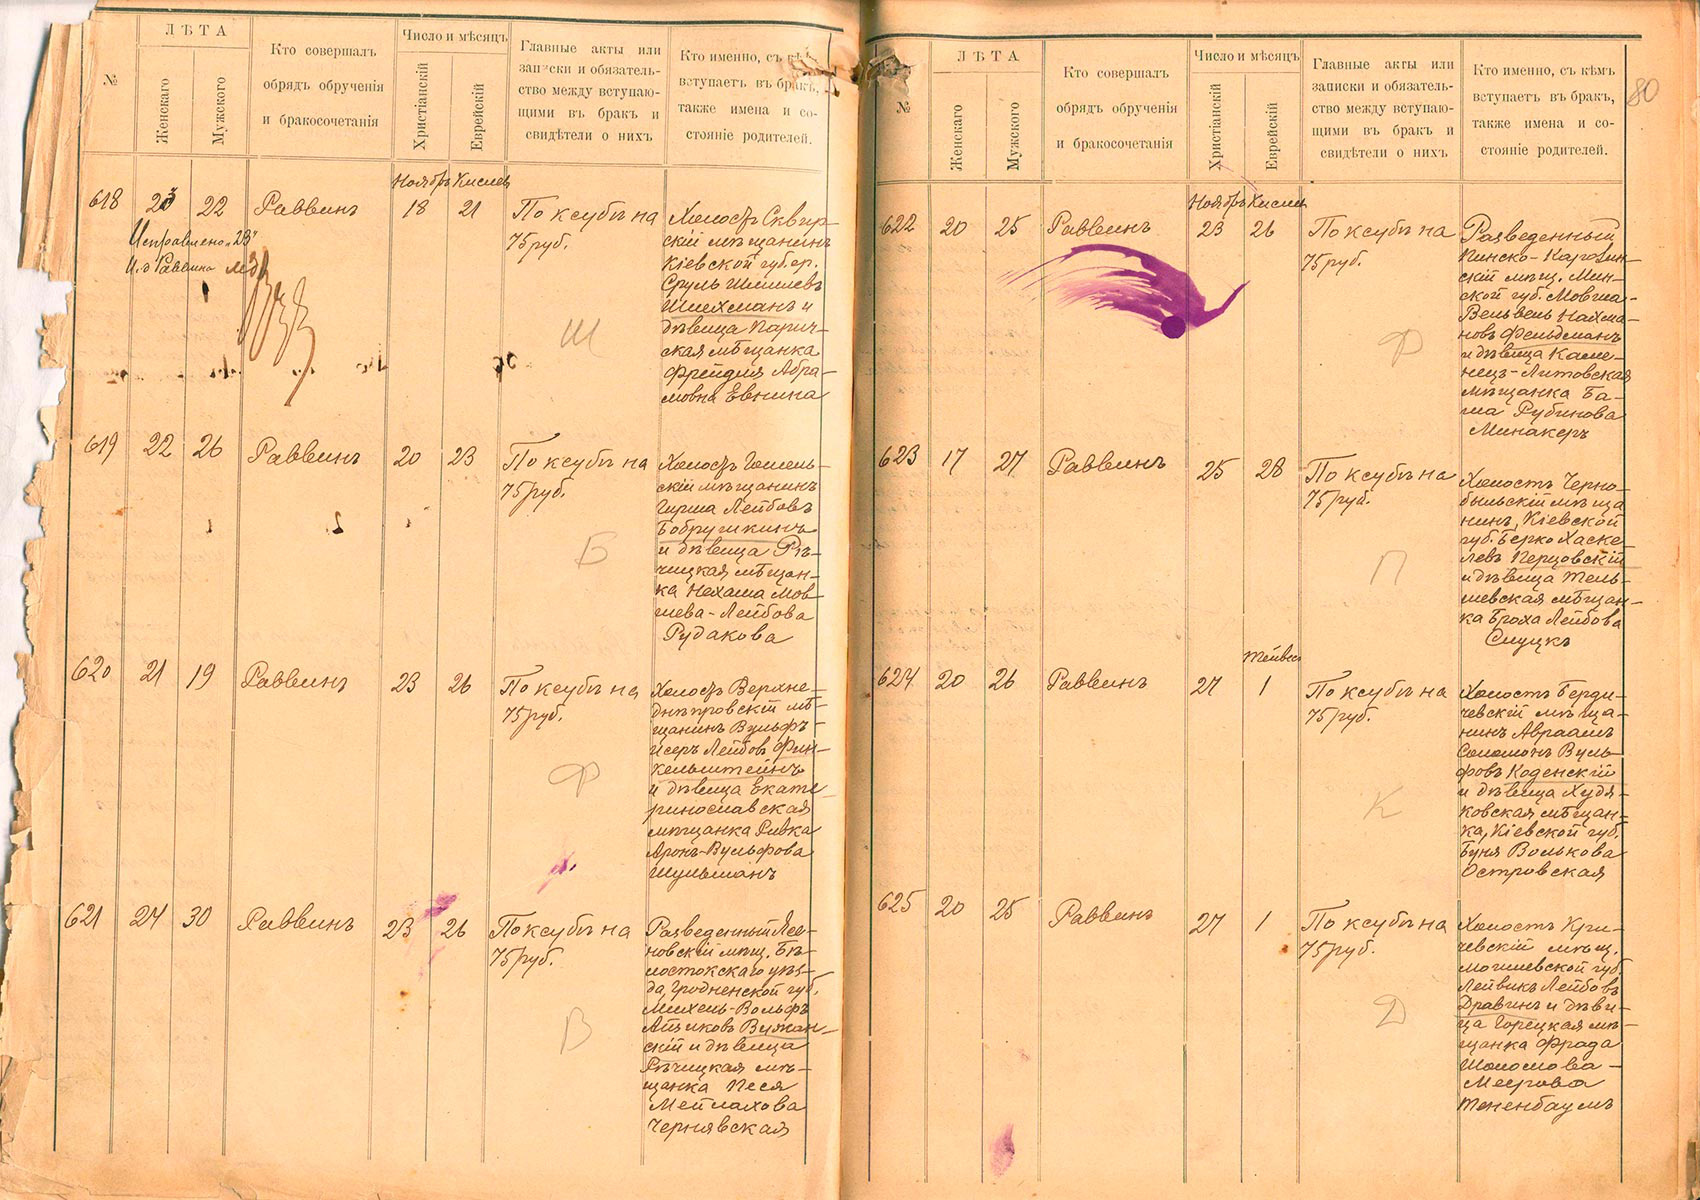 №
ЛѢТА
Женскаго
Мужского
Кто совершалъ
обрядъ обрученія
и бракосочетанія
Число и мѣсяцъ
Христіанскій
Еврейскій
Главные акты или
записки и обязатель-
ство между вступаю-
щими въ бракъ и
свидѣтели о нихъ
Кто именно, съ кѣмъ
вступаетъ въ бракъ,
также имена и со-
стояніе родителей.
Ноябрь Кислев
618 23 22 Раввинъ 18 21 По ксубѣ на
75 руб.
Исправлено „23"
И. д. Раввина
Холостъ Сквир-
скій мѣщанинъ
Кіевской губер.
Сруль Шлиѣевъ
Шлехманъ и
дѣвица Парич-
ская мѣщанка
Фрейдля Абра-
мовна Евнина
Ш
619 22 26 Раввинъ 20 23 По ксубѣ на
75 руб.
Холостъ Гомель-
скій мѣщанинъ
Гирша Лейбовъ
Бобрушкинъ
и дѣвица Рѣ-
чицкая мѣщан-
ка Нехама Мов-
шева-Лейбова
Рудакова
Б
620 21 19 Раввинъ 23 26 По ксубѣ на
75 руб.
Холостъ Верхне-
днѣпровскій мѣ-
щанинъ Вульфъ
Исеръ Лейбовъ Фин-
кельштейнъ
и дѣвица Екате-
ринославская
мѣщанка Ривка
Аронъ-Вульфова
Шульманъ
Ф
621 24 30 Раввинъ 23 26 По ксубѣ на
75 руб.
Разведенный Яси-
новскій мѣщ. Бѣ-
лостокскаго уѣз-
да, Гродненской губ.
Михель-Вольфъ
Айзиковъ Вужан-
скій и дѣвица
Рѣчицкая мѣ-
щанка Песя
Мейлахова
Чернявская
В
80
№
ЛѢТА
Женскаго
Мужского
Кто совершалъ
обрядъ обрученія
и бракосочетанія
Число и мѣсяцъ
Христіанскій
Еврейскій
Главные акты или
записки и обязатель-
ство между вступаю-
щими въ бракъ и
свидѣтели о нихъ
Кто именно, съ кѣмъ
вступаетъ въ бракъ,
также имена и со-
стояніе родителей.
Ноябрь Кислев
622 20 25 Раввинъ 23 26 По ксубѣ на
75 руб.
Разведенный
Пинско-Каролин-
скій мѣщ. Мин-
ской губ. Мовша-
Вельвель Нахма-
новъ Фельдманъ
и дѣвица Каме-
нецъ-Литовская
мѣщанка Ба-
ша Рубинова
Минакеръ
Ф
623 17 27 Раввинъ 25 28 По ксубѣ на
75 руб.
Холостъ Черно-
быльскій мѣща-
нинъ, Кіевской
губ. Берко Хаске-
левъ Перцовскій
и дѣвица Тель-
шевская мѣщан-
ка Броха Лейбова
Слуцкъ
П
Тейвес
624 20 26 Раввинъ 27 1 По ксубѣ на
75 руб.
Холостъ Берди-
чевскій мѣща-
нинъ Авраамъ
Соломонъ Вуль-
фовъ Коденскій
и дѣвица Худя-
ковская мѣщан-
ка, Кіевской губ.
Буня Волькова
Островская
К
625 20 25 Раввинъ 27 1 По ксубѣ на
75 руб.
Холостъ Кри-
чевскій мѣщ.
Могилевской губ.
Лейвикъ Лейбовъ
Дравинъ и дѣви-
ца Горецкая мѣ-
щанка Фрада
Шоломова-
Меерова
Тененбаумъ
Д